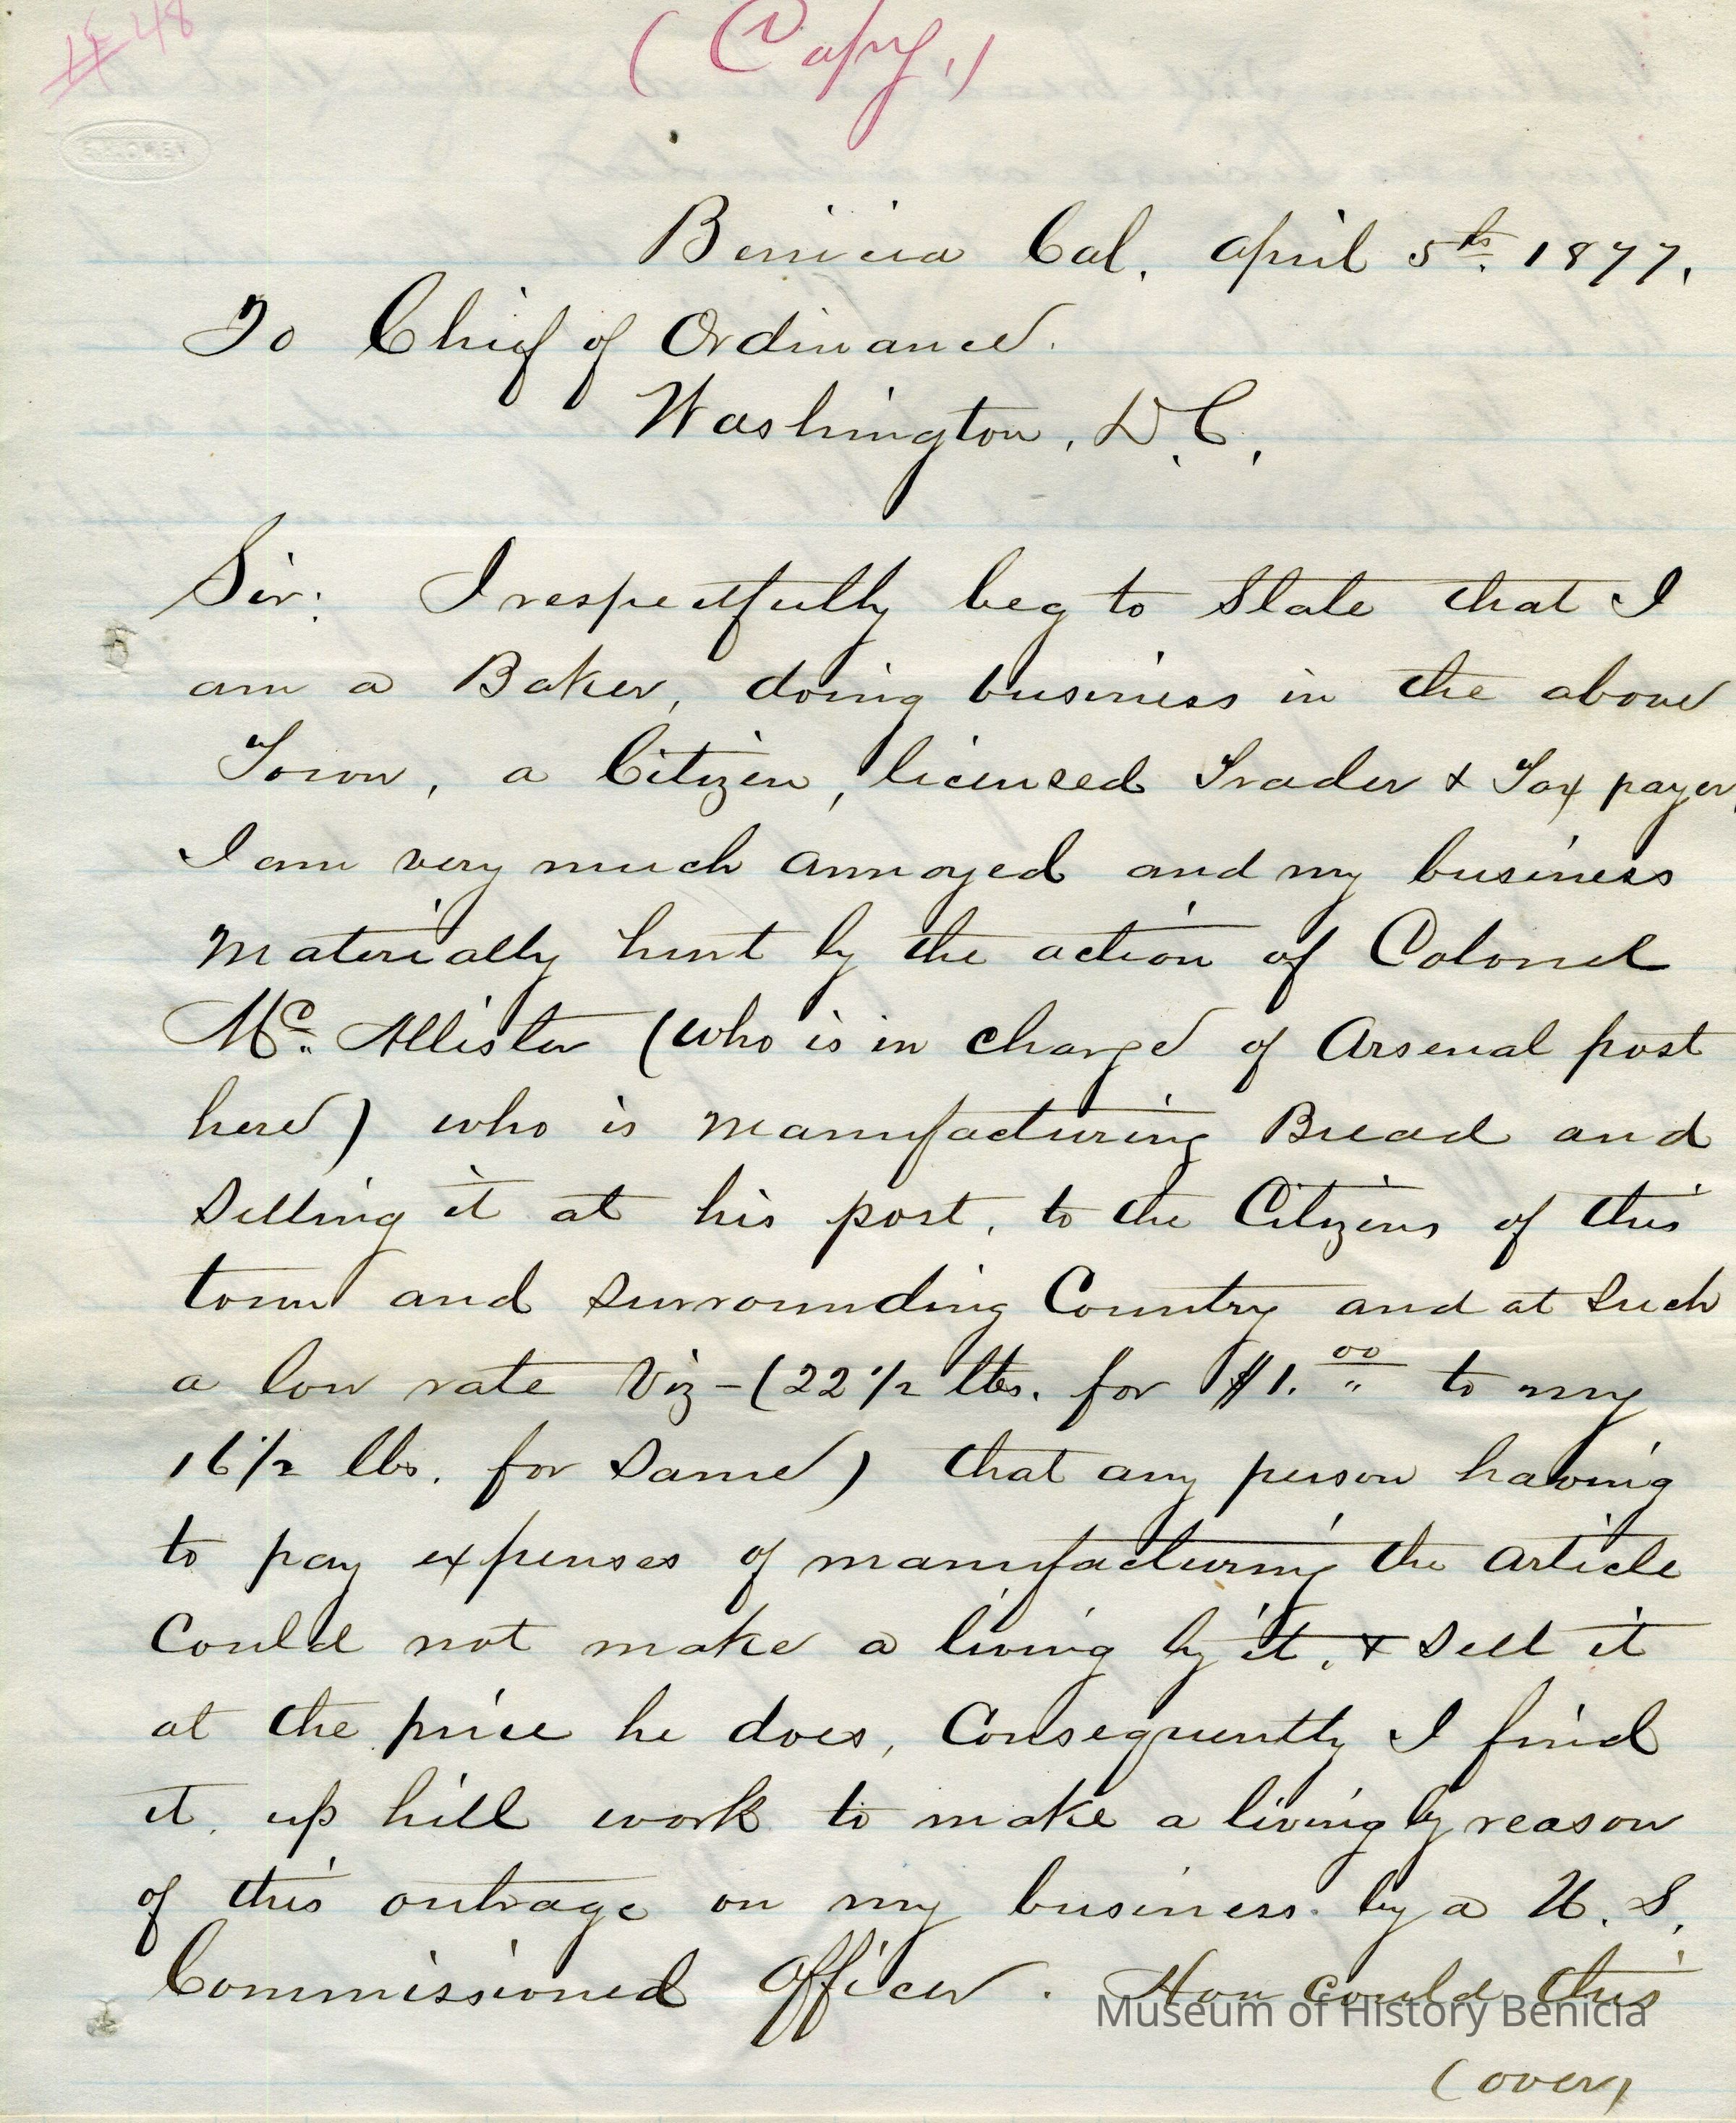 48
(Copy.)
Benicia Cal. April 5th. 1877.
To Chief of Ordinance.
Washington, D.C.
Sir: I respectfully beg to State that I
am a Baker, doing business in the above
Town, a Citizen, licensed Trader & Tax payer,
I am very much annoyed and my business
Materially hurt by the action of Colonel
Mc. Allister (who is in charge of Arsenal post
here) who is Manufacturing Bread and
Selling it at his post, to the Citizens of this
town and Surrounding Country and at Such
a low rate Viz-(22 1/2 lbs. for $1.00 to my
16 1/2 lbs. for Same) that any person having
to pay expenses of manufacturing the article
Could not make a living by it, & Sell it
at the price he does, Consequently I find
it up hill work to make a living by reason
of this outrage on my business by a U.S.
Commissioned Officer. How could this
Museum of History Benicia
(over)